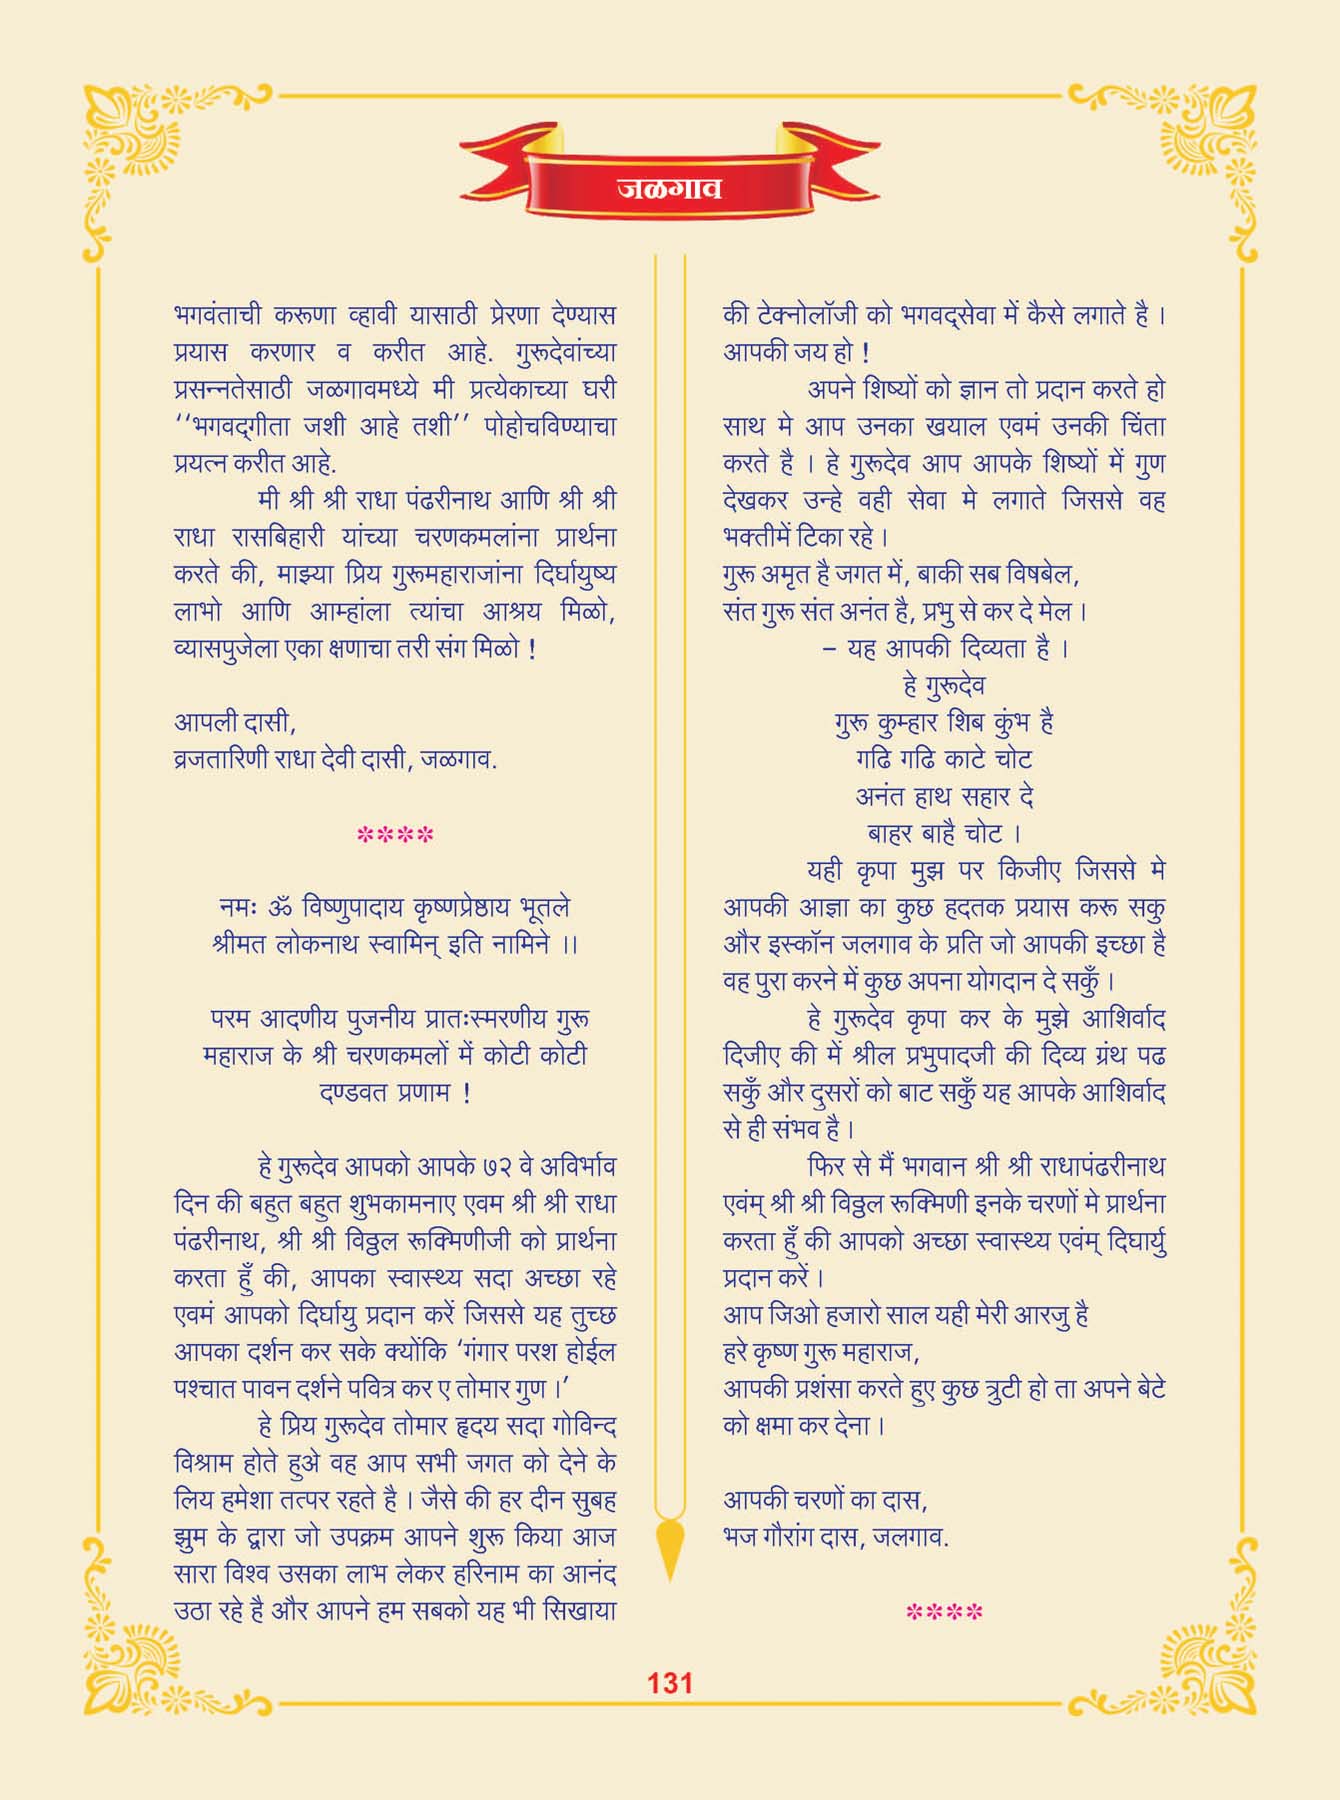 जळगाव
भगवंताची करूणा व्हावी यासाठी प्रेरणा देण्यास
प्रयास करणार व करीत आहे. गुरूदेवांच्या
प्रसन्नतेसाठी जळगावमध्ये मी प्रत्येकाच्या घरी
‘‘भगवद्‌गीता जशी आहे तशी’’ पोहोचविण्याचा
प्रयत्न करीत आहे.
मी श्री श्री राधा पंढरीनाथ आणि श्री श्री
राधा रासबिहारी यांच्या चरणकमलांना प्रार्थना
करते की, माझ्या प्रिय गुरूमहाराजांना दिर्घायुष्य
लाभो आणि आम्हांला त्यांचा आश्रय मिळो,
व्यासपुजेला एका क्षणाचा तरी संग मिळो !
आपली दासी,
व्रजतारिणी राधा देवी दासी, जळगाव.
****
नमः ॐ विष्णुपादाय कृष्णप्रेष्ठाय भूतले
श्रीमत लोकनाथ स्वामिन् इति नामिने ।।
परम आदणीय पुजनीय प्रातःस्मरणीय गुरू
महाराज के श्री चरणकमलों में कोटी कोटी
दण्डवत प्रणाम !
हे गुरूदेव आपको आपके ७२ वे अविर्भाव
दिन की बहुत बहुत शुभकामनाए एवम श्री श्री राधा
पंढरीनाथ, श्री श्री विठ्ठल रूक्मिणीजी को प्रार्थना
करता हुँ की, आपका स्वास्थ्य सदा अच्छा रहे
एवमं आपको दिर्घायु प्रदान करें जिससे यह तुच्छ
आपका दर्शन कर सके क्योंकि ‘गंगार परश होईल
पश्चात पावन दर्शने पवित्र कर ए तोमार गुण ।’
हे प्रिय गुरूदेव तोमार हृदय सदा गोविन्द
विश्राम होते हुअे वह आप सभी जगत को देने के
लिय हमेशा तत्पर रहते है । जैसे की हर दीन सुबह
झुम के द्वारा जो उपक्रम आपने शुरू किया आज
सारा विश्व उसका लाभ लेकर हरिनाम का आनंद
उठा रहे है और आपने हम सबको यह भी सिखाया
की टेक्नोलॉजी को भगवद्‌सेवा में कैसे लगाते है ।
आपकी जय हो !
अपने शिष्यों को ज्ञान तो प्रदान करते हो
साथ मे आप उनका खयाल एवमं उनकी चिंता
करते है । हे गुरूदेव आप आपके शिष्यों में गुण
देखकर उन्हे वही सेवा मे लगाते जिससे वह
भक्तीमें टिका रहे ।
गुरू अमृत है जगत में, बाकी सब विषबेल,
संत गुरू संत अनंत है, प्रभु से कर दे मेल ।
– यह आपकी दिव्यता है ।
हे गुरूदेव
गुरू कुम्हार शिब कुंभ है
गढि गढि काटे चोट
अनंत हाथ सहार दे
बाहर बाहै चोट ।
यही कृपा मुझ पर किजीए जिससे मे
आपकी आज्ञा का कुछ हदतक प्रयास करू सकु
और इस्कॉन जलगाव के प्रति जो आपकी इच्छा है
वह पुरा करने में कुछ अपना योगदान दे सकुँ ।
हे गुरूदेव कृपा कर के मुझे आशिर्वाद
दिजीए की में श्रील प्रभुपादजी की दिव्य ग्रंथ पढ
सकुँ और दुसरों को बाट सकुँ यह आपके आशिर्वाद
से ही संभव है ।
फिर से मैं भगवान श्री श्री राधापंढरीनाथ
एवंम् श्री श्री विठ्ठल रूक्मिणी इनके चरणों मे प्रार्थना
करता हुँ की आपको अच्छा स्वास्थ्य एवंम् दिघार्यु
प्रदान करें ।
आप जिओ हजारो साल यही मेरी आरजु है
हरे कृष्ण गुरू महाराज,
आपकी प्रशंसा करते हुए कुछ त्रुटी हो ता अपने बेटे
को क्षमा कर देना ।
आपकी चरणों का दास,
भज गौरांग दास, जलगाव.
****
131